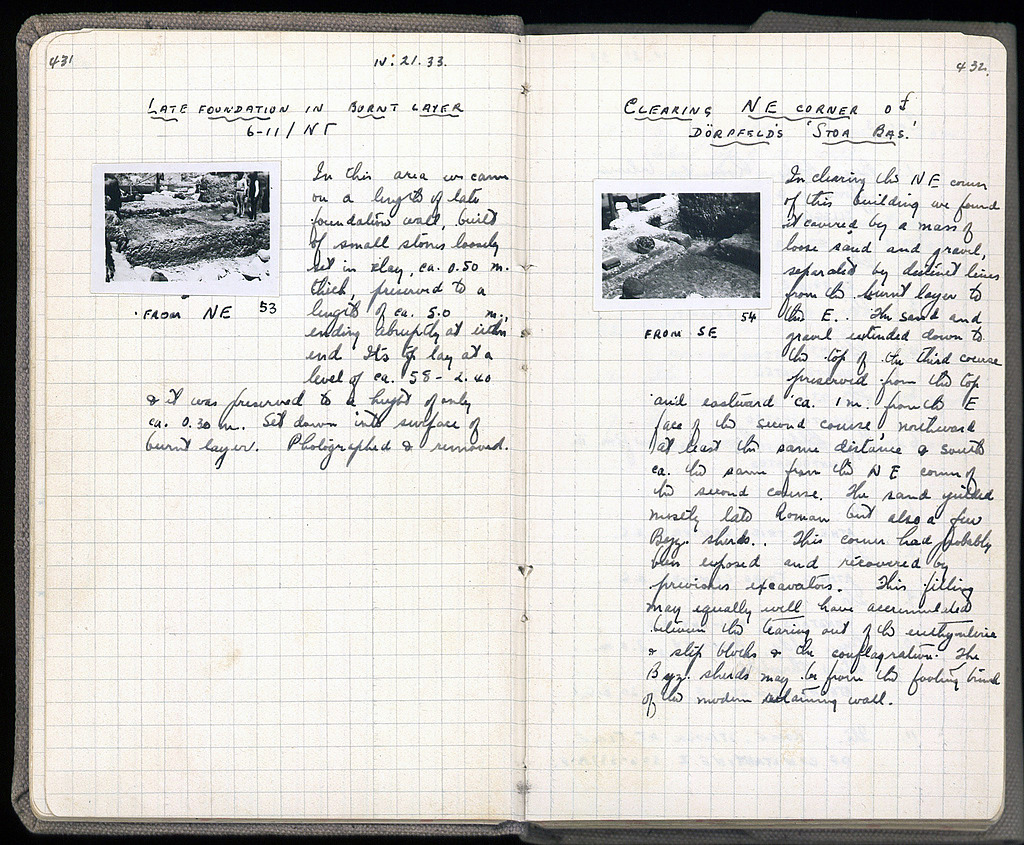 431
IV: 21. 33.
LATE FOUNDATION IN BURNT LAYER
6-11/ΝΓ
In this area we came
on a length of late
foundation wall, built
of small stones loosely
set in clay, ca. 0.50 m.
thick, preserved to a
length of ca. 5.0 m.,
ending abruptly at either
end. Its top lay at a
level of ca. 58 - 2.40
& it was preserved to a height of only
ca. 0.30 m. Set down into surface of
burnt layer. Photographed & removed.
FROM NE 53
432.
CLEARING NE CORNER of
DÖRPFELD'S 'STOA BAS.'
In clearing the NE corner
of this building we found
it covered by a mass of
loose sand and gravel,
separated by distinct lines
from the burnt layer to
the E.. The sand and
gravel extended down to
the top of the third course
preserved from the top
and eastward ca. 1 m. from the E
face of the second course, northward
at least the same distance & south
ca. the same from the NE corner of
the second course. The sand yielded
mostly late Roman but also a few
Byz. sherds.. This corner had probably
been exposed and recovered by
previous excavators. This filling
may equally well have accumulated
between the tearing out of the euthynteria
& step blocks & the conflagration. The
Byz. sherds may be from the footing trench
of the modern retaining wall.
54
FROM SE